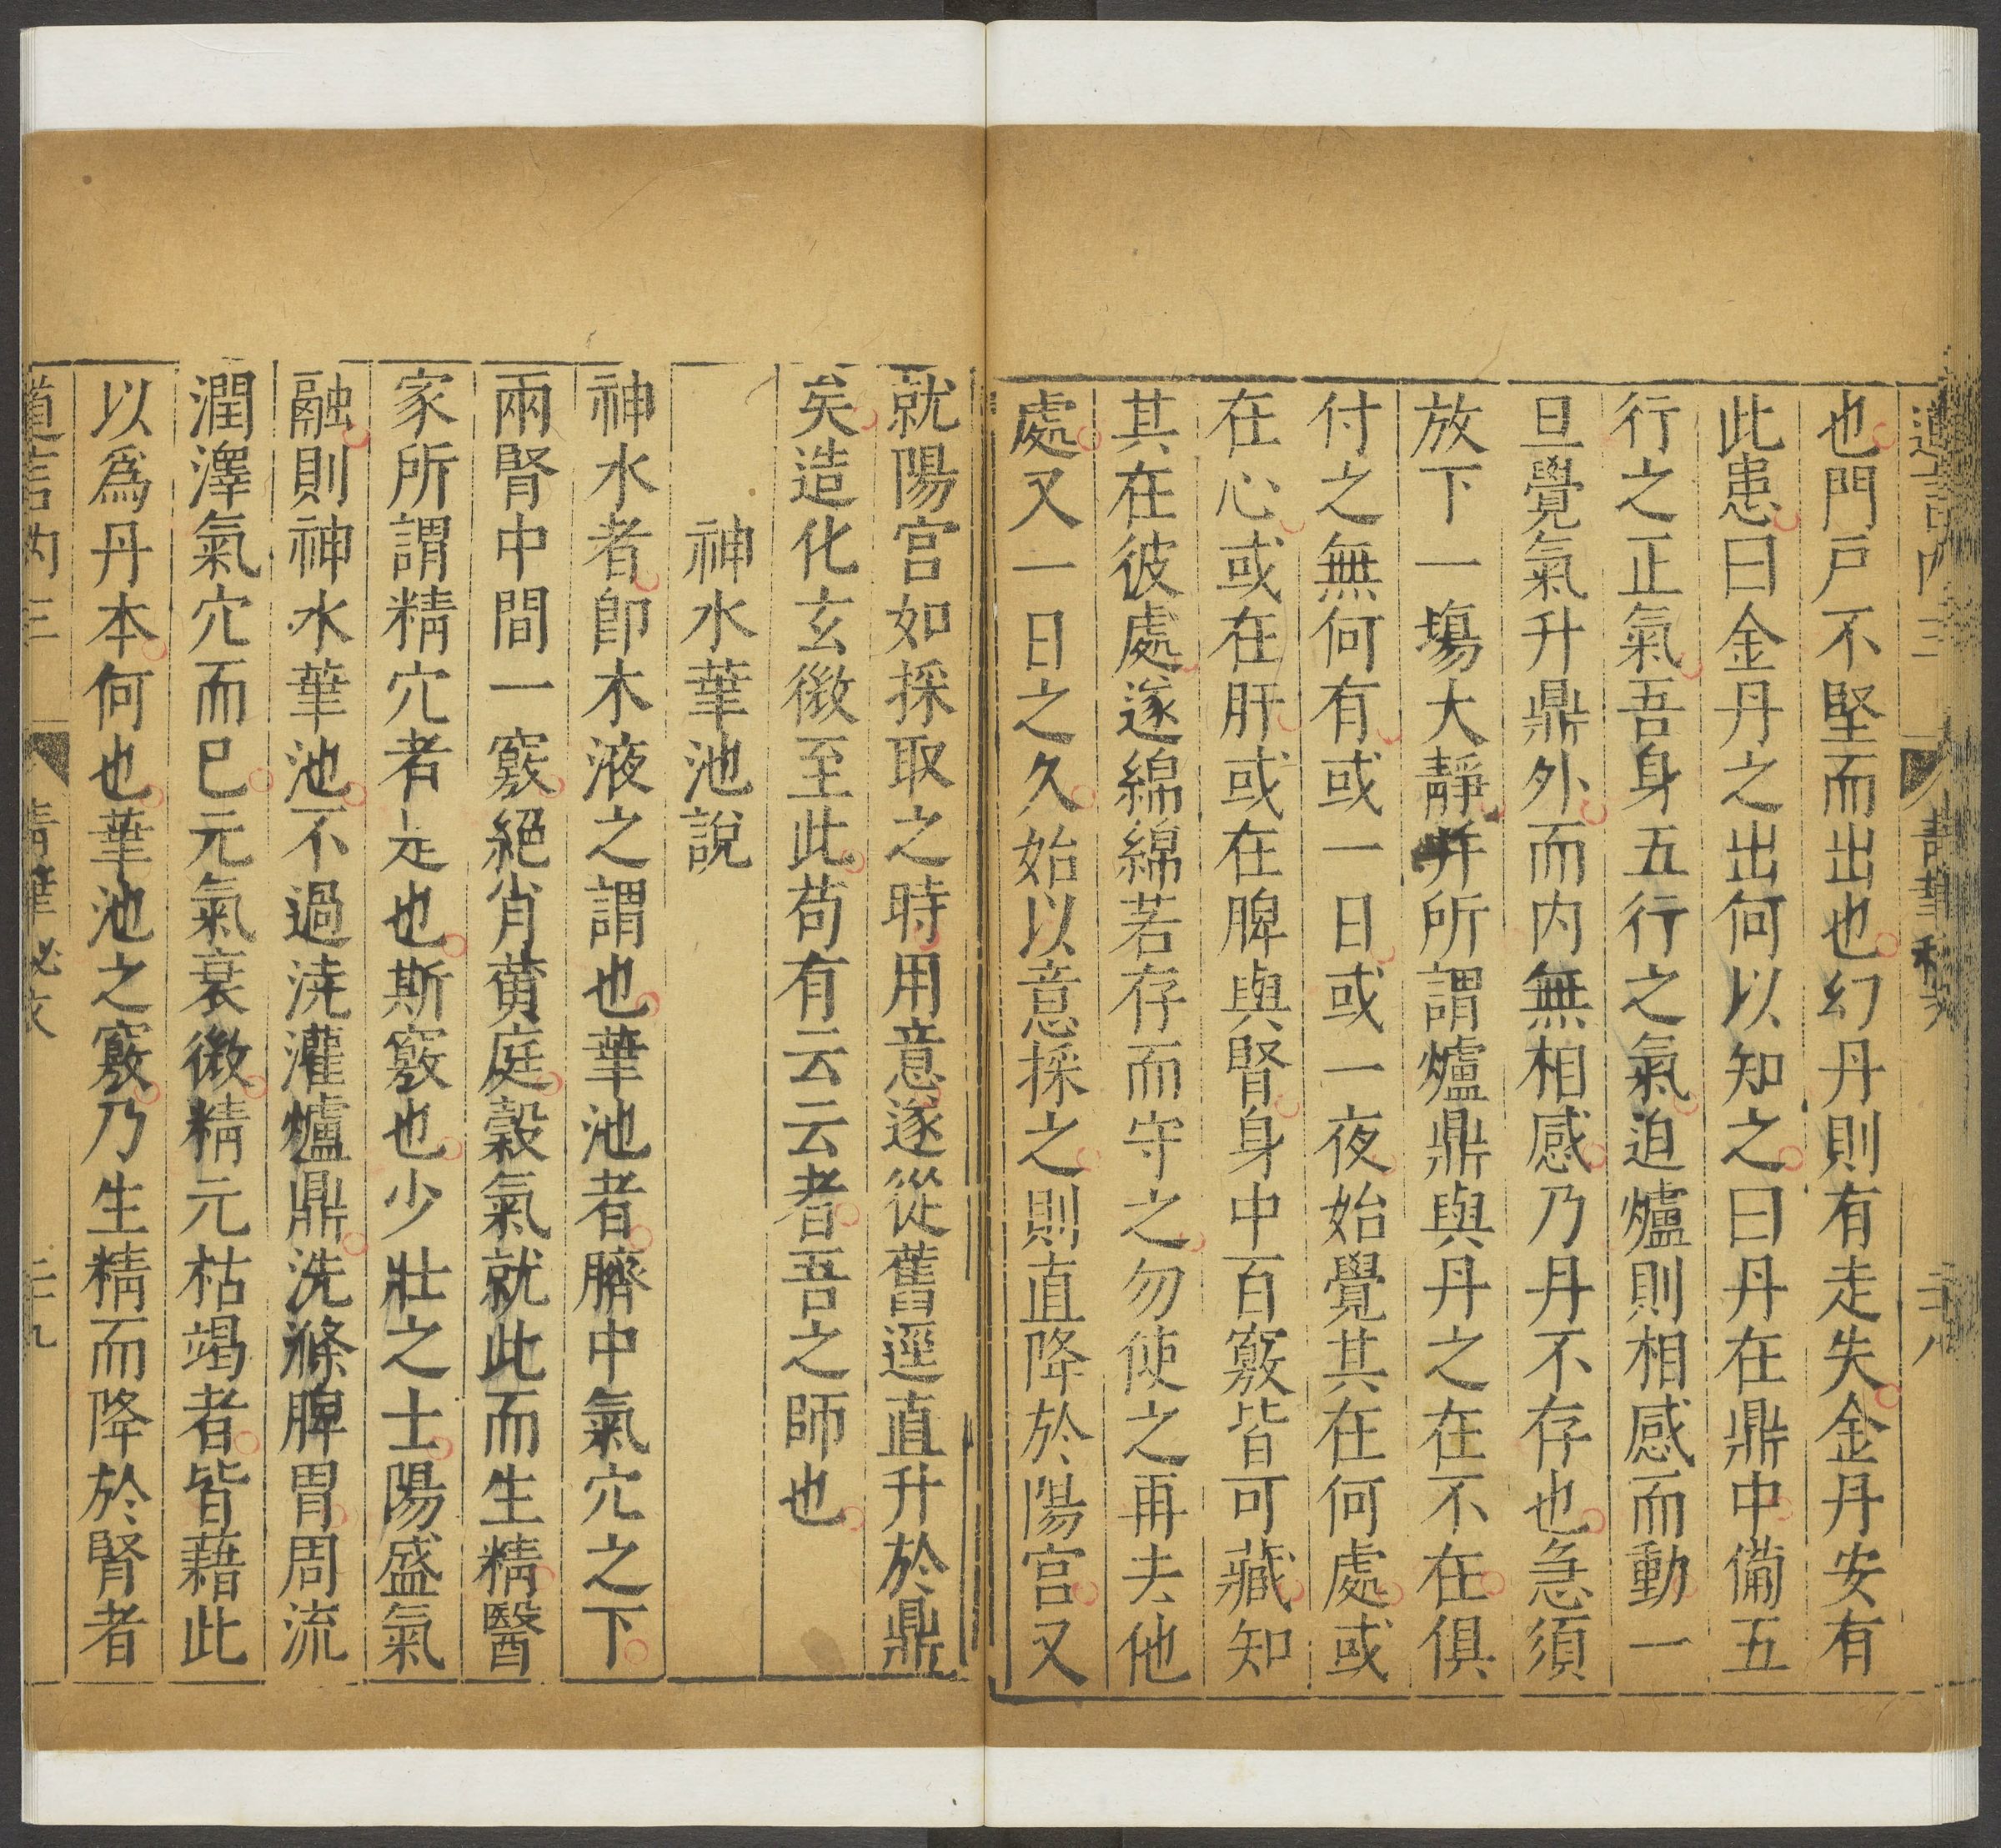 道言內三 青華秘文 三十八
也門戸不堅而出也幻丹則有走失金丹安有
此患曰金丹之出何以知之曰丹在鼎中備五
行之正氣吾身五行之氣迫爐則相感而動一
旦覺氣升鼎外而内無相感乃丹不存也急須
放下一塲大靜并所謂爐鼎與丹之在不在俱
付之無何有或一日或一夜始覺其在何處或
在心或在肝或在脾與腎身中百竅皆可藏知
其在彼處遂綿綿若存而守之勿使之再去他
處又一日之久始以意採之則直降於陽宫又
就陽宫如採取之時用意遂從舊逕直升於鼎
矣造化玄微至此苟有云云者吾之師也
神水華池說
神水者卽木液之謂也華池者臍中氣穴之下
兩腎中間一竅絕肖黄庭穀氣就此而生精醫
家所謂精穴者是也斯竅也少壯之士陽盛氣
融則神水華池不過澆灌爐鼎洗滌脾胃周流
潤澤氣穴而巳元氣衰微精元枯竭者皆藉此
以爲丹本何也華池之竅乃生精而降於腎者
道言内三 青華秘文 三十九